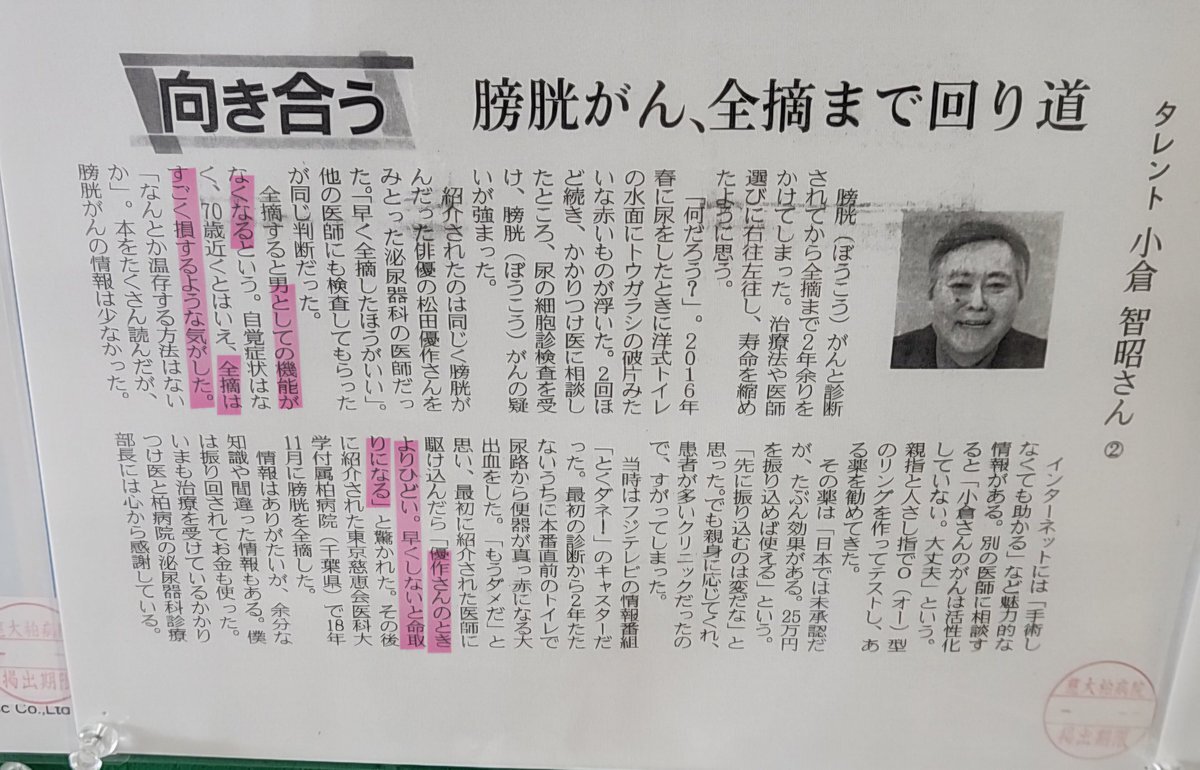 向き合う
膀胱がん、全摘まで回り道
タレント 小倉 智昭さん ②
膀胱（ぼうこう）がんと診断
されてから全摘まで2年余りを
かけてしまった。治療法や医師
選びに右往左往し、寿命を縮め
たように思う。
「何だろう？」。2016年
春に尿をしたときに洋式トイレ
の水面にトウガラシの破片みた
いな赤いものが浮いた。2回ほ
ど続き、かかりつけ医に相談し
たところ、尿の細胞診検査を受
け、膀胱（ぼうこう）がんの疑
いが強まった。
紹介されたのは同じく膀胱が
んだった俳優の松田優作さんを
みとった泌尿器科の医師だっ
た。「早く全摘したほうがいい」。
他の医師にも検査してもらった
が同じ判断だった。
全摘すると男としての機能が
なくなるという。自覚症状はな
く、70歳近くとはいえ、全摘は
すごく損するような気がした。
「なんとか温存する方法はない
か」。本をたくさん読んだが、
膀胱がんの情報は少なかった。
インターネットには「手術し
なくても助かる」など魅力的な
情報がある。別の医師に相談す
ると「小倉さんのがんは活性化
していない。大丈夫」という。
親指と人さし指でO（オー）型
のリングを作ってテストし、あ
る薬を勧めてきた。
その薬は「日本では未承認だ
が、たぶん効果がある。25万円
を振り込めば使える」という。
「先に振り込むのは変だな」と
思った。でも親身に応じてくれ、
患者が多いクリニックだったの
で、すがってしまった。
当時はフジテレビの情報番組
「とくダネ！」のキャスターだ
った。最初の診断から2年たた
ないうちに本番直前のトイレで
尿路から便器が真っ赤になる大
出血をした。「もうダメだ」と
思い、最初に紹介された医師に
駆け込んだら「優作さんのとき
よりひどい。早くしないと命取
りになる」と驚かれた。その後
に紹介された東京慈恵会医科大
学付属柏病院（千葉県）で18年
11月に膀胱を全摘した。
情報はありがたいが、余分な
知識や間違った情報もある。僕
は振り回されてお金も使った。
いまも治療を受けているかかり
つけ医と柏病院の泌尿器科診療
部長には心から感謝している。
掲出期限
sc Co.,Ltd
掲出期限